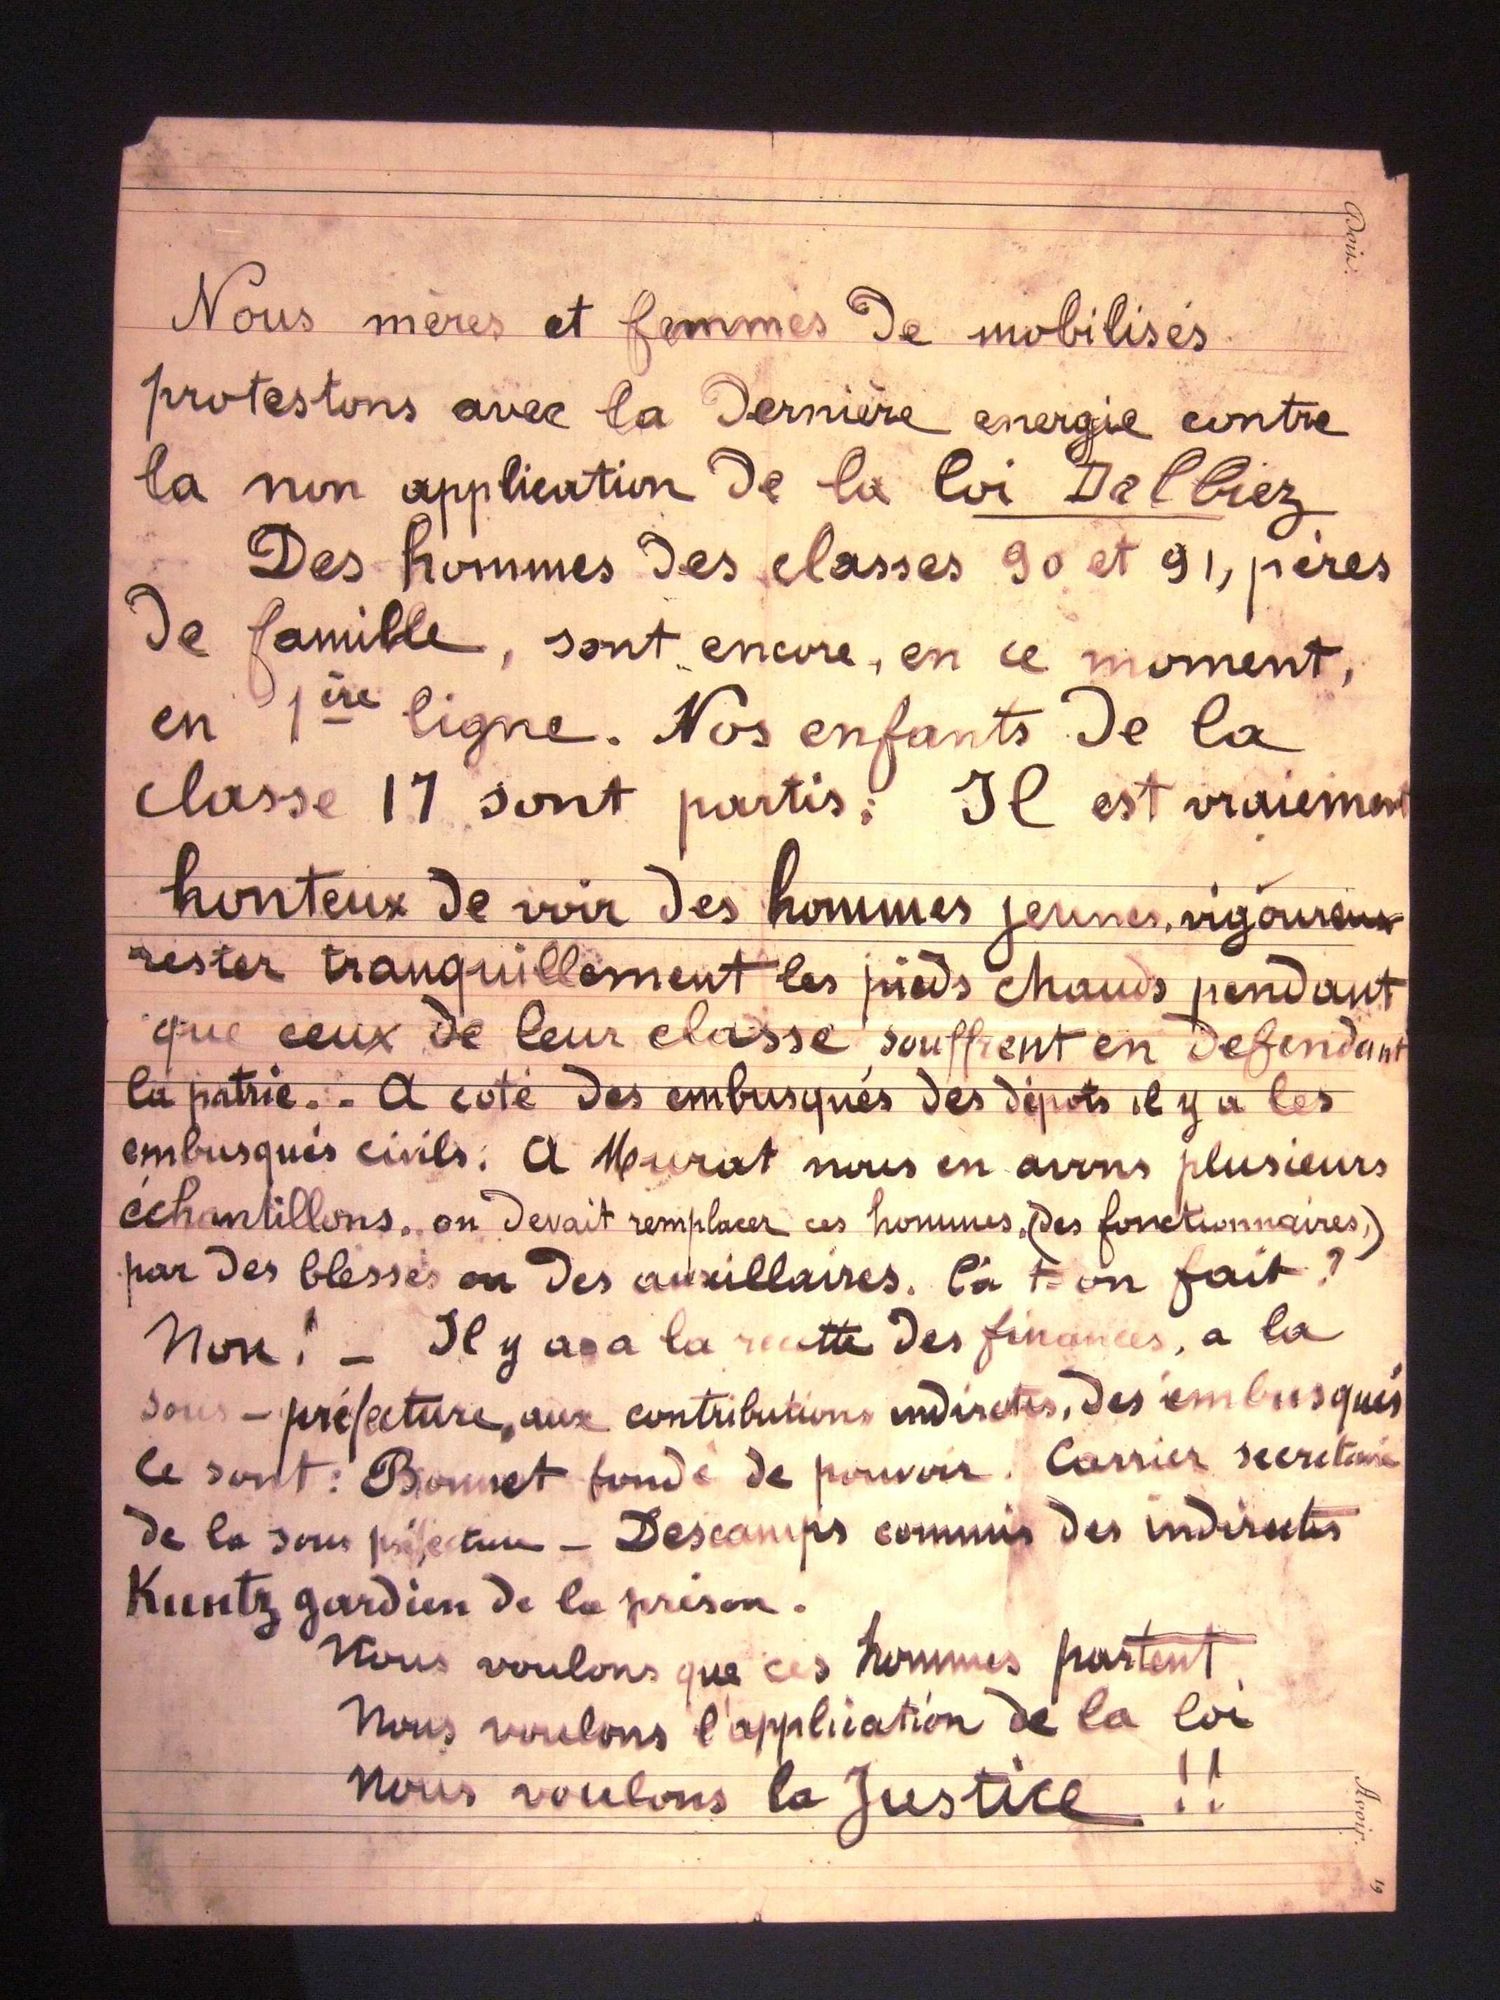 Doit.
Nous mères et femmes de mobilisés
protestons avec la dernière energie contre
la non application de la loi Dalbiez
Des hommes des classes 90 et 91, pères
de famille, sont encore, en ce moment,
en 1ère ligne. Nos enfants de la
classe 17 sont partis. Il est vraiement
honteux de voir des hommes jeunes, vigoureux
rester tranquillement les pieds chauds pendant
que ceux de leur classe souffrent en defendant
la patrie. . A coté des embusqués des dépots il y a les
embusqués civils. A Murat nous en avons plusieurs
échantillons. on devait remplacer ces hommes, (des fonctionnaires,)
par des blessés ou des auxillaires. l'a t-on fait ?
Non ! - Il y a a la recette des finances, a la
sous-préfecture, aux contributions indirectes, des embusqués
Ce sont : Bonnet fondé de pouvoir. Carrier secretaire
de la sous préfecture - Descamps commis des indirectes
Kuntz gardien de la prison.
Nous voulons que ces hommes partent
Nous voulons l'application de la loi
Nous voulons la Justice !!
Avoir.
19